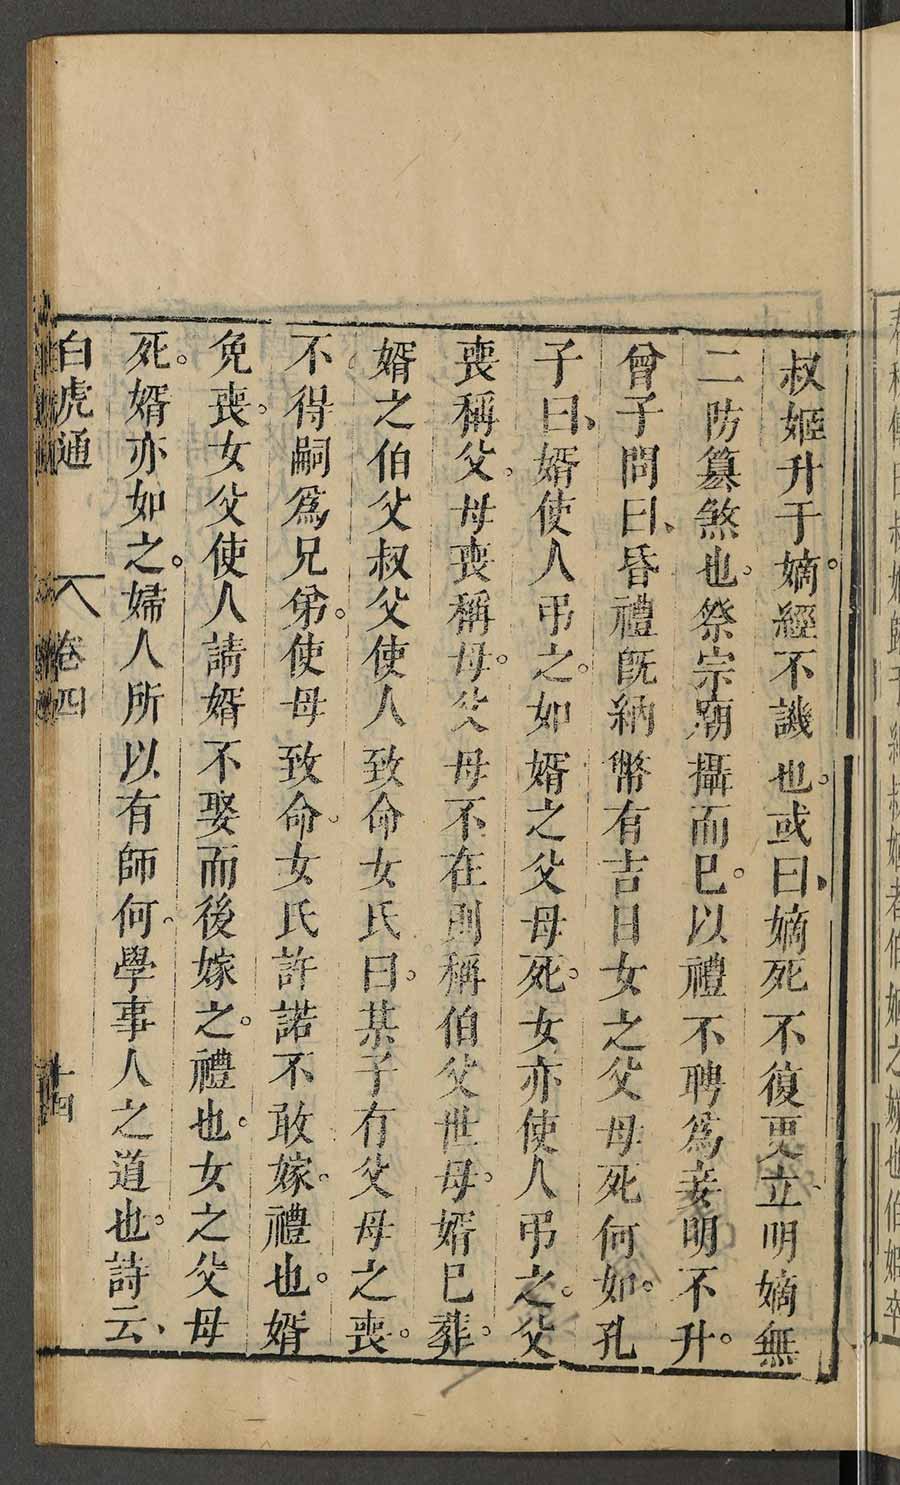 叔姬升于嫡。經不譏也。或曰、嫡死不復更立、明嫡無
二防簒煞也。祭宗廟攝而已。以禮不聘爲妾明不升。
曾子問曰、昏禮旣納幣有吉日女之父母死何如。孔
子曰、婿使人弔之。如婿之父母死。女亦使人弔之。父
喪稱父。母喪稱母。父母不在則稱伯父世母。婿已葬。
婿之伯父叔父使人致命女氏曰。某子有父母之喪。
不得嗣爲兄弟。使母致命。女氏許諾不敢嫁。禮也。婿
免喪。女父使人請婿不娶而後嫁之。禮也。女之父母
死。婿亦如之。婦人所以有師何。學事人之道也。詩云、
白虎通 卷四 十四